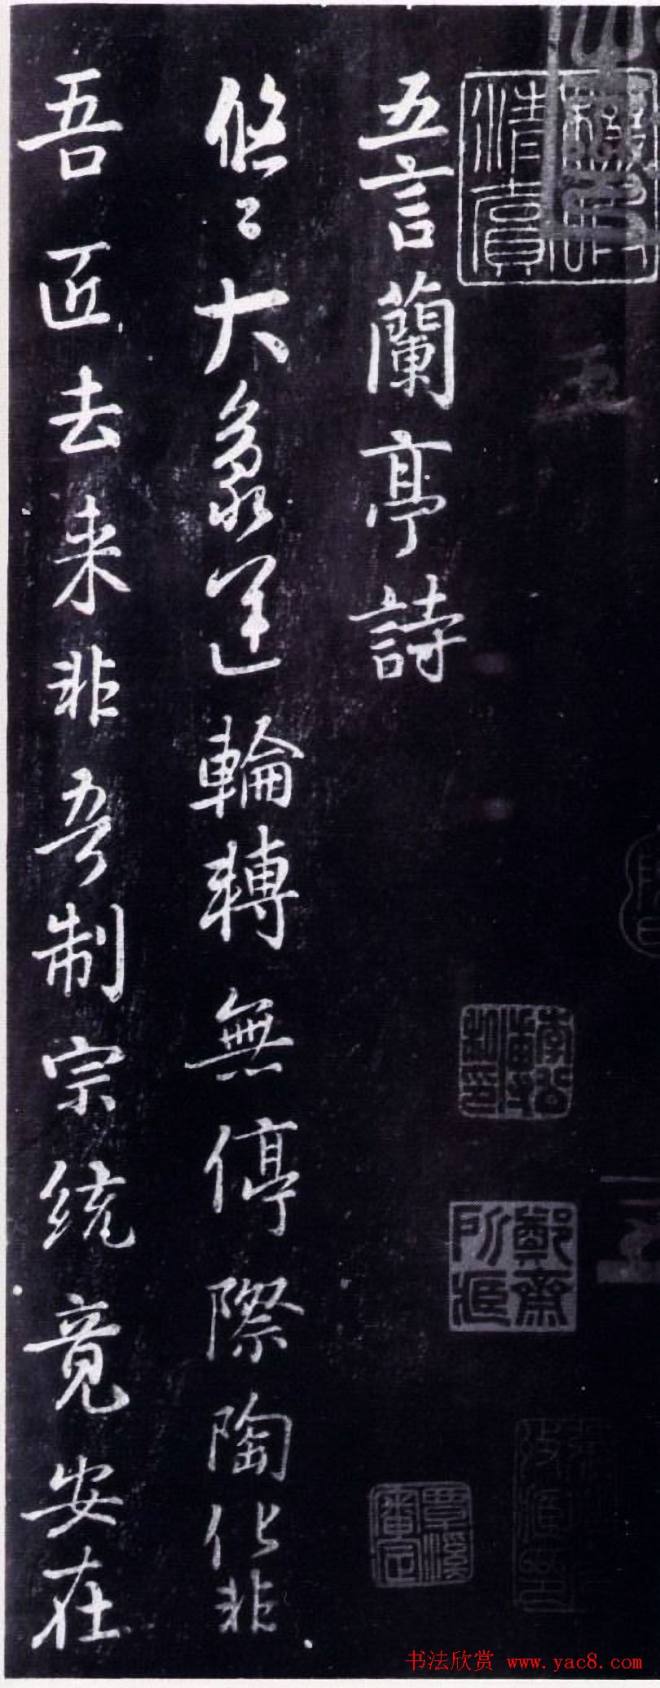 五言蘭亭詩
悠〻大象運輪轉無停際陶化非
吾匠去来非吾制宗統竟安在
鄭齋所藏
覃溪審定
书法欣赏 www.yac8.com